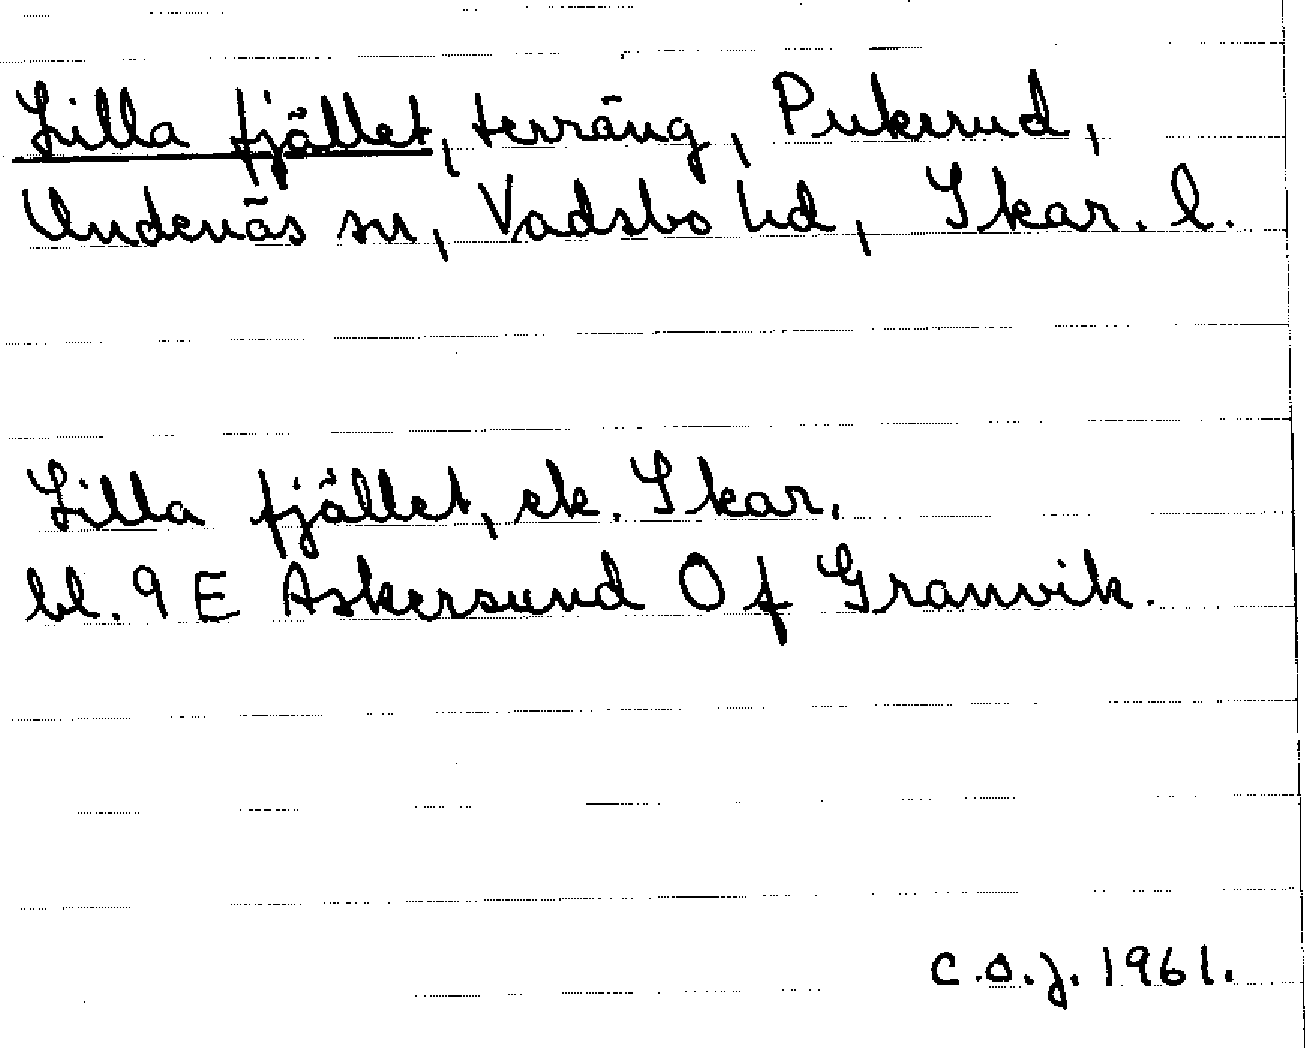 Lilla fjället, terräng, Pukerud,
Undenäs sn, Vadsbo hd, Skar. l.
Lilla fjället, ek. Skar.
bl. 9 E Askersund O f Granvik.
C.O.J. 1961.